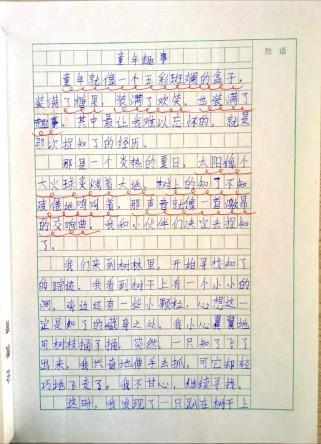 批语
童年趣事
童年就像一个五彩斑斓的盒子，
装满了糖果，装满了欢笑，也装满了
趣事。其中最让我难以忘怀的，就是
那次捉知了的经历。
那是一个炎热的夏日，太阳像个
大火球炙烤着大地，树上的知了不知
疲倦地鸣叫着，那声音就像一首激昂
的交响曲。我和小伙伴们决定去捉知
了。
我们来到树林里，开始寻找知了
的踪迹。我看到树干上有一个小小的
洞，旁边还有一些小颗粒，心想这一
定是知了的藏身之处。我小心翼翼地
用树枝捅了捅，突然，一只知了飞了
出来，我兴奋地伸手去抓，可它却轻
巧地飞走了。我不甘心，继续寻找。
这时，我发现了一只趴在树干上